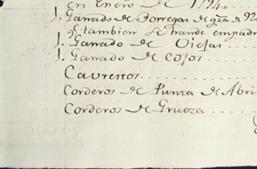 en Enero de 1794.
J. Ganado de Borregas de gra. de 92
q. tambien se hande empadr
J. Ganado de Ovejas
J. Ganado de cojos
Caureños
Corderos de Punta de Abri
Corderos de Grueza